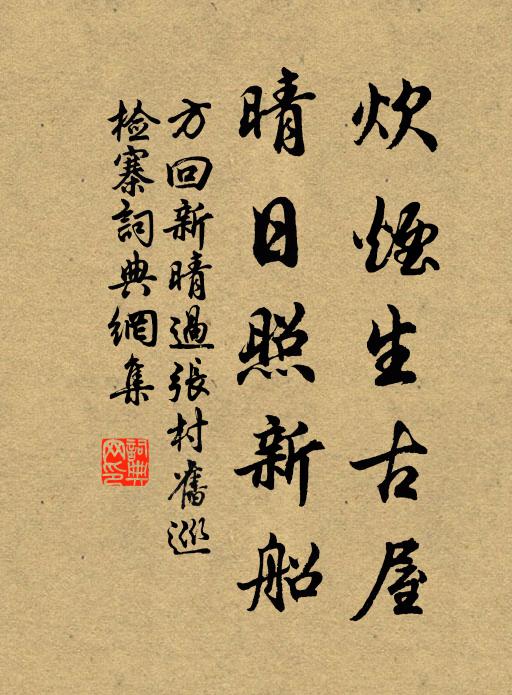 炊煙生古屋
晴日照新船
方回新晴過張村舊巡
檢寨詞典網集
詞典
网印